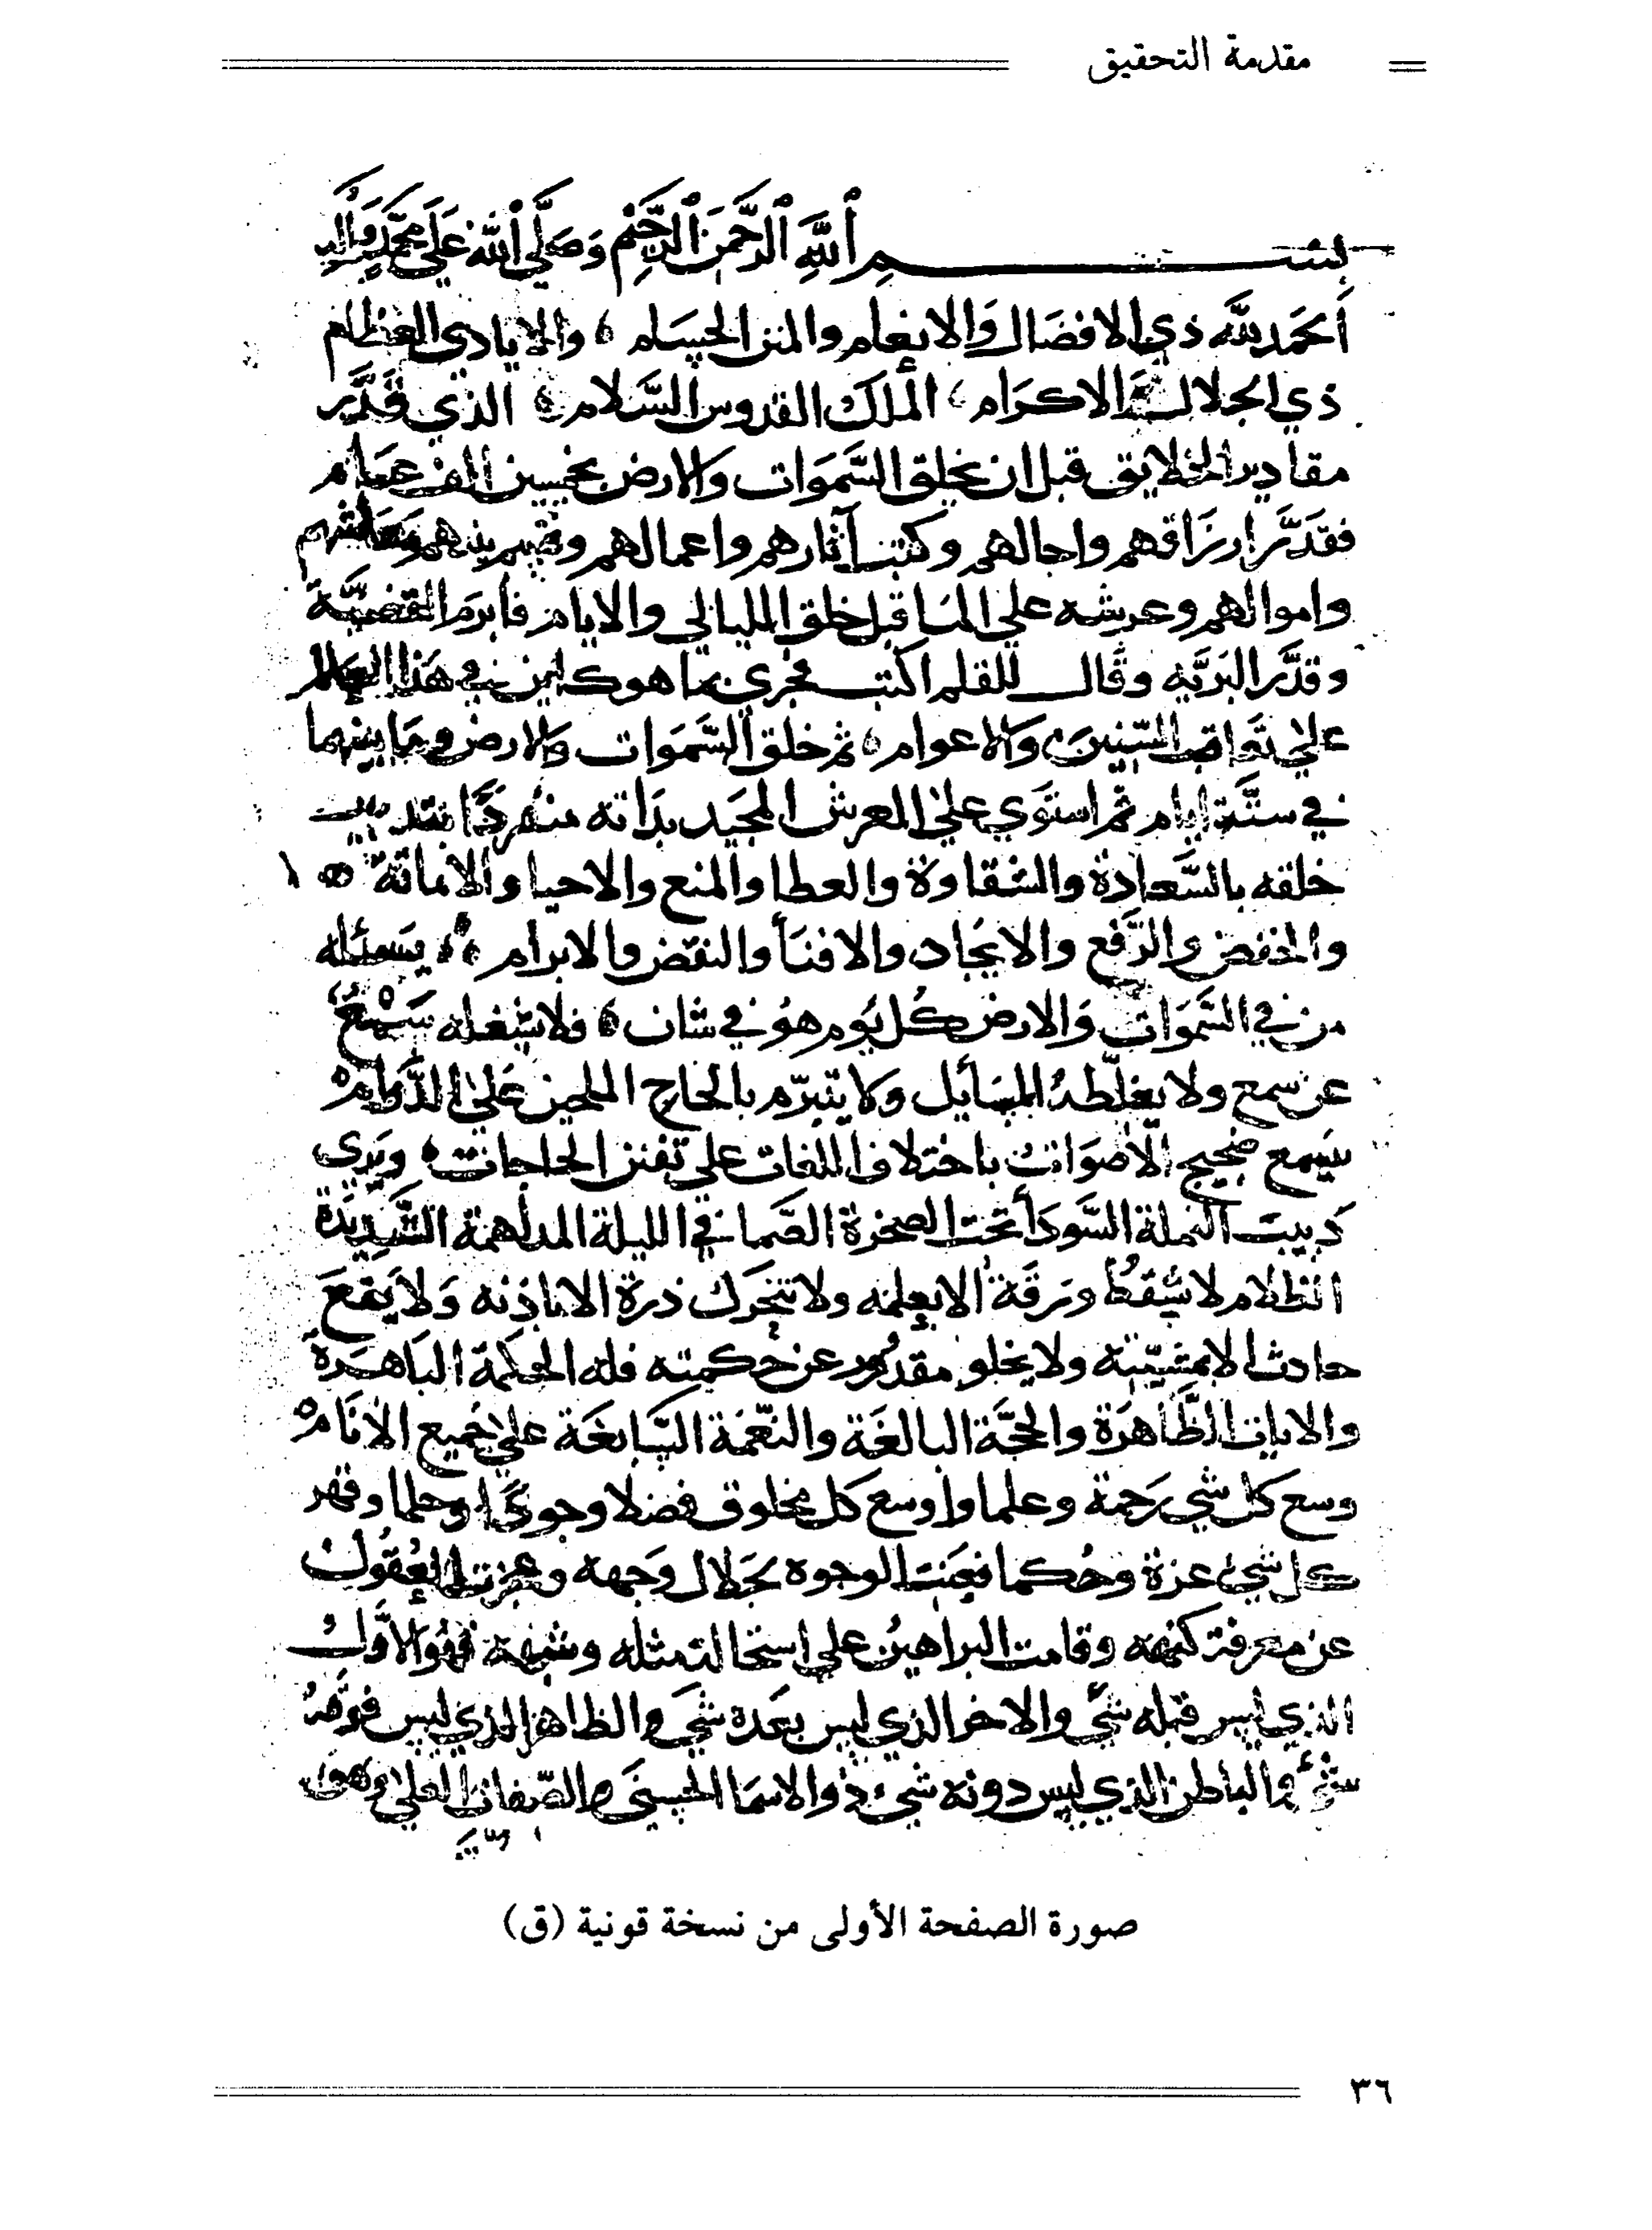 مقدمة التحقيق
بسم الله الرحمن الرحيم وصلى الله على محمد وآله
الحمد لله ذي الافضال والانعام والمنن الجسام والايادي العظام
ذي الجلال والاكرام الملك القدوس السلام الذي قدر
مقادير الخلايق قبل ان يخلق السموات والارض بخمسين الف عام
فقدر ارزاقهم واجالهم وكتب آثارهم واعمالهم وقسم بينهم معايشهم
واموالهم وعرشه علي الما قبل خلق الليالي والايام فأبرم القضية
وقدر البريه وقال للقلم اكتب فجري بما هو كاين في هذا العالم
علي تعاقب السنين والاعوام ثم خلق السموات والارض وما بينهما
في ستة ايام ثم استوي علي العرش المجيد بذاته منفردا بتدبير
خلقه بالسعادة والشقاوة والعطا والمنع والاحيا والاماتة
والخفض والرفع والايجاد والافنأ والنقض والابرام يسئله
من في السموات والارض كل يوم هو في شان فلا يشغله سمع
عن سمع ولا يغلطه المسأيل ولا يتبرم بالحاح الملحين علي الدوام
يسمع ضجيج الأصوات باختلاف اللغات علي تفنن الحاجات ويري
دبيب النملة السودأ تحت الصخرة الصما في الليلة المدلهمة الشديدة
الظلام لا تسقط ورقة الا بعلمه ولا تتحرك ذرة الا باذنه ولا يقع
حادث الا بمشيته ولا يخلو مقدور عن حكمته فله الحكمة الباهرة
والايات الظاهرة والحجة البالغة والنعمة السابغة علي جميع الأنام
وسع كل شي رحمة وعلما واوسع كل مخلوق فضلا وجودا وحلما وقهر
كل شيء عزة وحكما فعنت الوجوه لجلال وجهه وعجزت العقول
عن معرفة كنهه وقامت البراهين علي استحالة مثله وشبهه فهو الأول
الذي ليس قبله شئ والاخر الذي ليس بعده شي والظاهر الذي ليس فوقه
شئ والباطن الذي ليس دونه شيء ذو الاسما الحسنى والصفات العلي
صورة الصفحة الأولى من نسخة قونية (ق)
٣٦